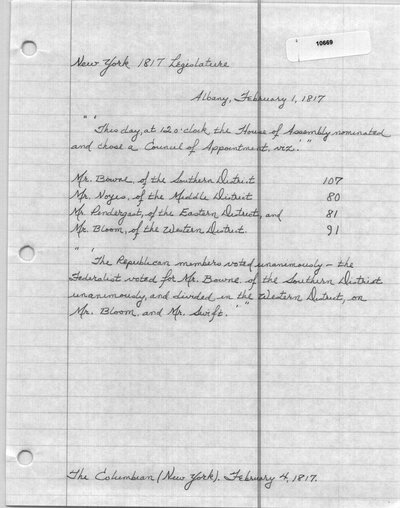 10669
New York 1817 Legislature
Albany, February 1, 1817
" ' This day, at 12 o'clock, the House of Assembly nominated
and chose a Council of Appointment, viz.' "
Mr. Bowne, of the Southern District 107
Mr. Noyes, of the Middle District 80
Mr. Pendergast, of the Eastern District, and 81
Mr. Bloom, of the Western District. 91
" ' The Republican members voted unanimously - the
Federalist voted for Mr. Bowne of the Southern District
unanimously, and divided in the Western District, on
Mr. Bloom and Mr. Swift. ' "
The Columbian (New York). February 4, 1817.